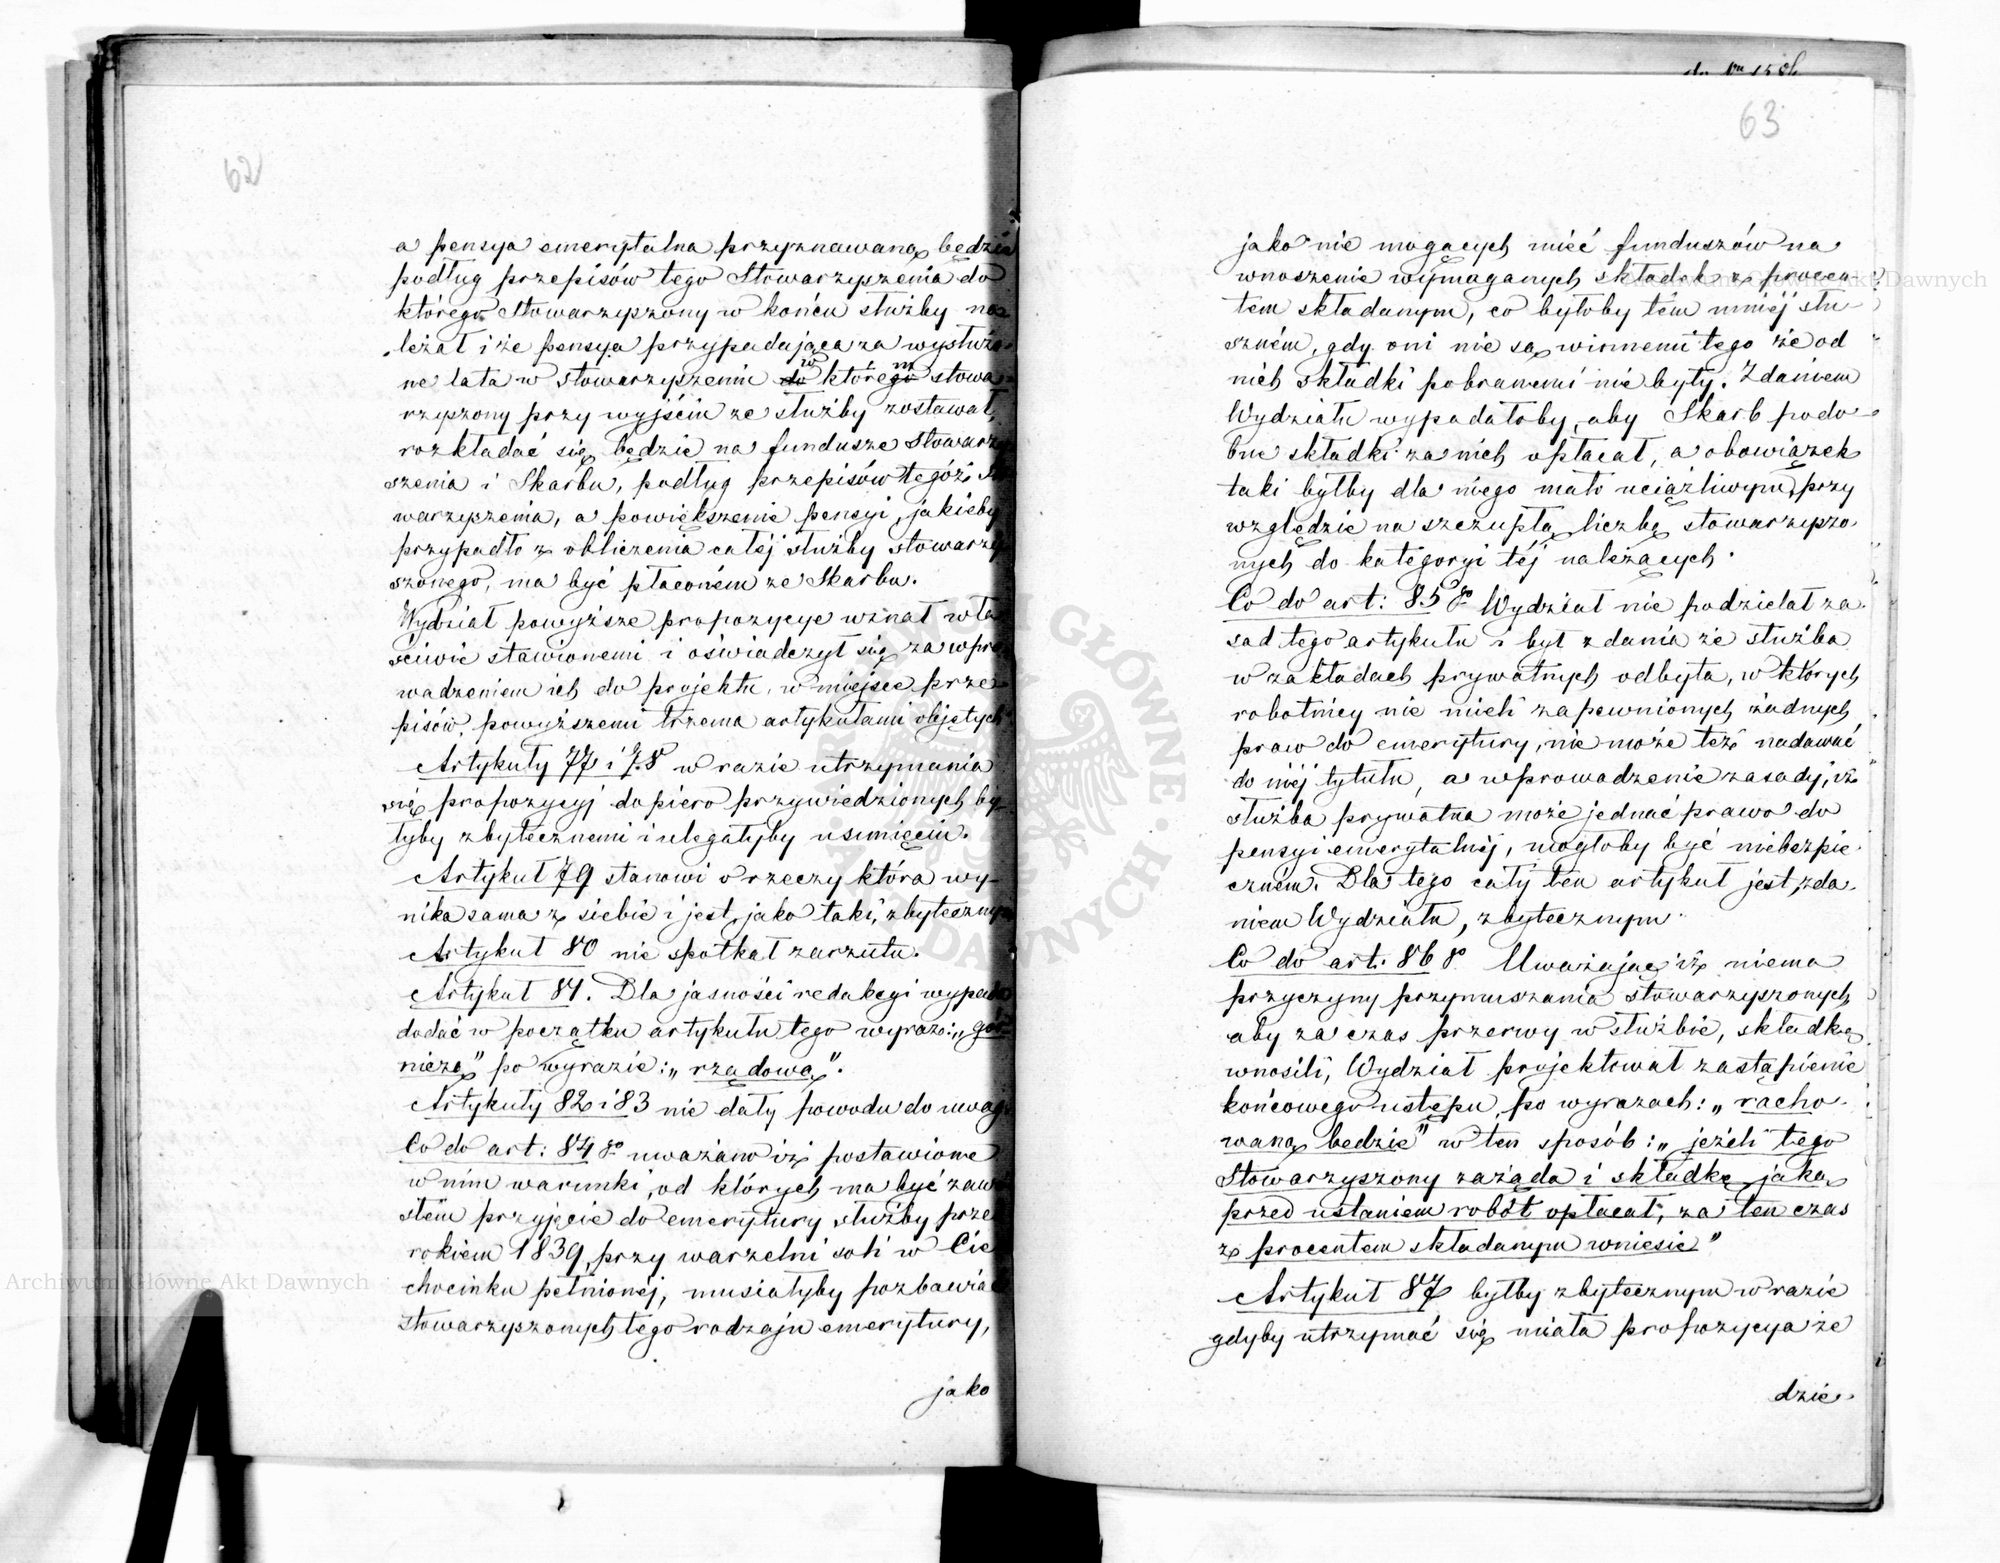 62
a pensya emerytalna przyznawaną będzie
podług przepisów tego Stowarzyszenia do
którego Stowarzyszony w końcu służby na
leżał i że pensya przypadająca za wysłużo
ne lata w stowarzyszeniu do w którego m stowa
rzyszony przy wyjściu ze służby zostawał,
rozkładać się będzie na fundusze Stowarzy
szenia i Skarbu, podług przepisów tegóż Sto
warzyszenia, a powiększenie pensyi, jakieby
przypadło z obliczenia całéj służby stowarzy
szonego, ma być płaconém ze Skarbu.
Wydział powyższe propozycye uznał wła
ściwie stawionemi i oświadczył się za wpro
wadzeniem ich do projektu, w miejsce prze
pisów, powyższemi trzema artykułami objętych
Artykuły 77 i 78 w razie utrzymania
się propozycyj dopiero przywiedzionych by
łyby zbytecznemi i ulegałyby usunięciu.
Artykuł 79 stanowi o rzeczy która wy-
nika sama z siebie i jest, jako taki, zbytecznym
Artykuł 80 nie spotkał zarzutu.
Artykuł 81. Dla jasności redakcyi wypada
dodać w początku artykułu tego wyraz: „gór
niczą” po wyrazie: „rządową”.
Artykuły 82 i 83 nie dały powodu do uwag.
Co do art: 84go uważano iż postawione
w nim warunki, od których ma być zawi
słém przyjęcie do emerytury służby przed
rokiem 1839, przy warzelni soli w Cie
chocinku pełnionéj, musiałyby pozbawiać
stowarzyszonych tego rodzaju emerytury,
jako
63
jako nie mogących mieć funduszów na
wnoszenie wymaganych składek z procen
tem składanym, co byłoby tem mniéj słu
szném, gdy oni nie są winnemi tego że od
nich składki pobranemi nie były. Zdaniem
Wydziału wypadałoby, aby Skarb podo-
bne składki za nich opłacał, a obowiązek
taki byłby dla niego mało uciążliwym, przy
względzie na szczupłą liczbę stowarzyszo
nych do kategoryi téj należących.
Co do art: 85go Wydział nie podzielał za
sad tego artykułu i był zdania że służba
w zakładach prywatnych odbyta, w których
robotnicy nie mieli zapewnionych żadnych
praw do emerytury, nie może też nadawać
do niéj tytułu, a wprowadzenie zasady, iż
służba prywatna może jednać prawo do
pensyi emerytalnéj, mogłoby być niebezpie
czném. Dla tego cały ten artykuł jest, zda
niem Wydziału, zbytecznym.
Co do art: 86go Uważając iż niema
przyczyny przymuszania stowarzyszonych
aby za czas przerwy w służbie, składkę
wnosili, Wydział projektował zastąpienie
końcowego ustępu, po wyrazach: „racho
waną bedzie” w ten sposób: „jeżeli tego
Stowarzyszony zażąda i składkę, jaką
przed ustaniem robót opłacał, za ten czas
z procentem składanym wniesie”
Artykuł 87 byłby zbytecznym w razie
gdyby utrzymać się miała propozycya że
dzie
Archiwum Główne Akt Dawnych
Archiwum Główne Akt Dawnych
ARCHIWUM GŁÓWNE AKT DAWNYCH